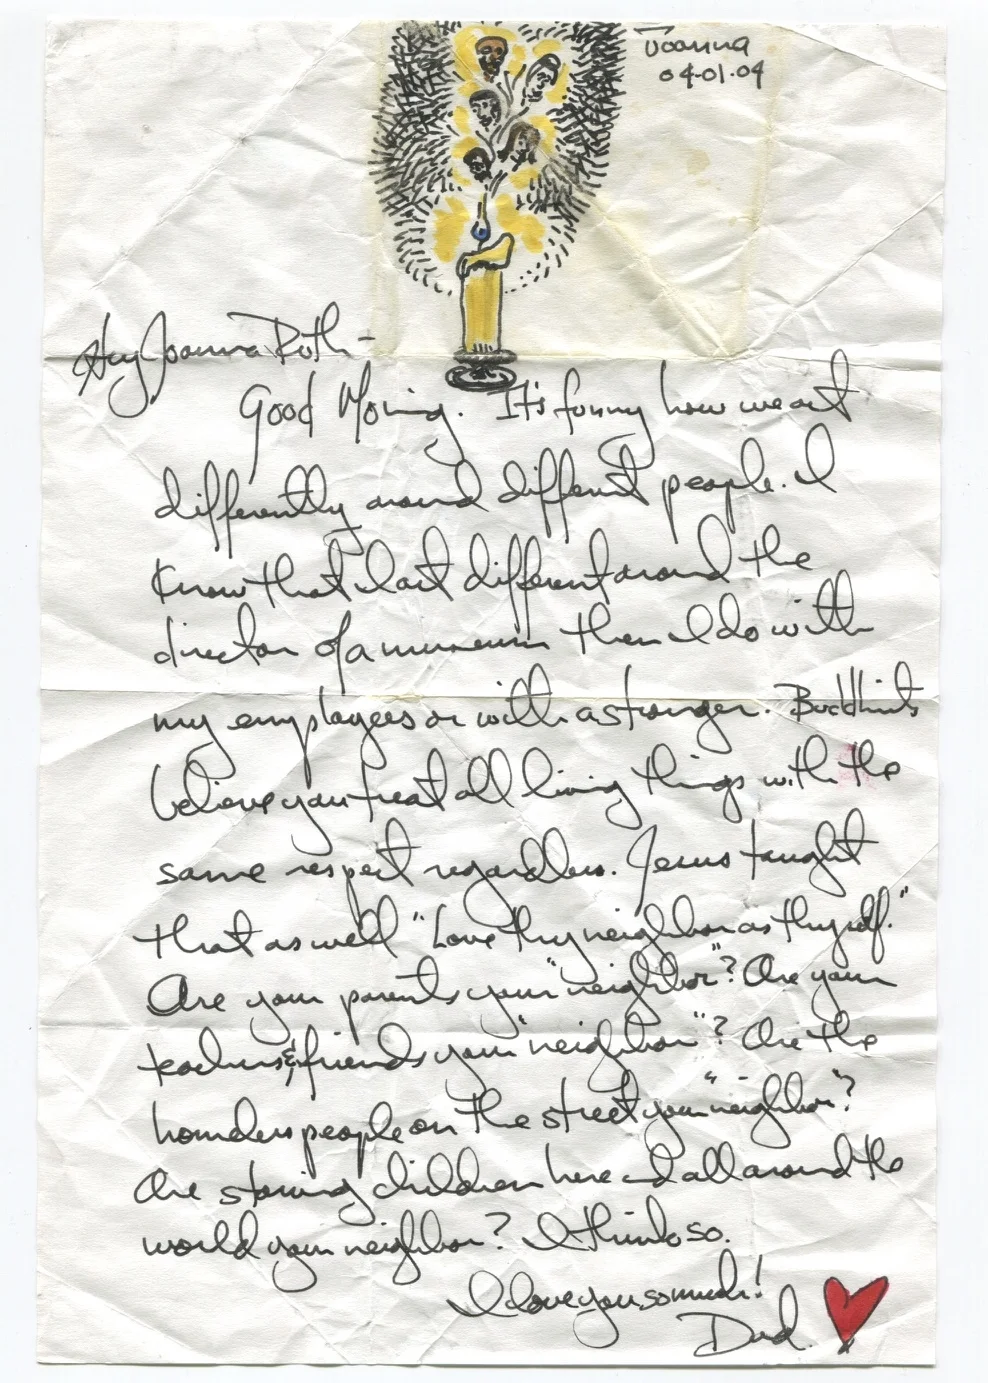 Joanna
04.01.04
Hey Joanna Ruth -
Good Morning. It's funny how we act
differently around different people. I
know that I act different around the
director of a museum then I do with
my employees or with a stranger. Buddhists
believe you treat all living things with the
same respect regardless. Jesus taught
that as well "Love thy neighbor as thyself."
Are your parents your "neighbor"? Are your
teachers & friends your "neighbor"? Are the
homeless people on the street your "neighbor"?
Are starving children here and all around the
world your neighbor? I think so.
I love you so much!
Dad